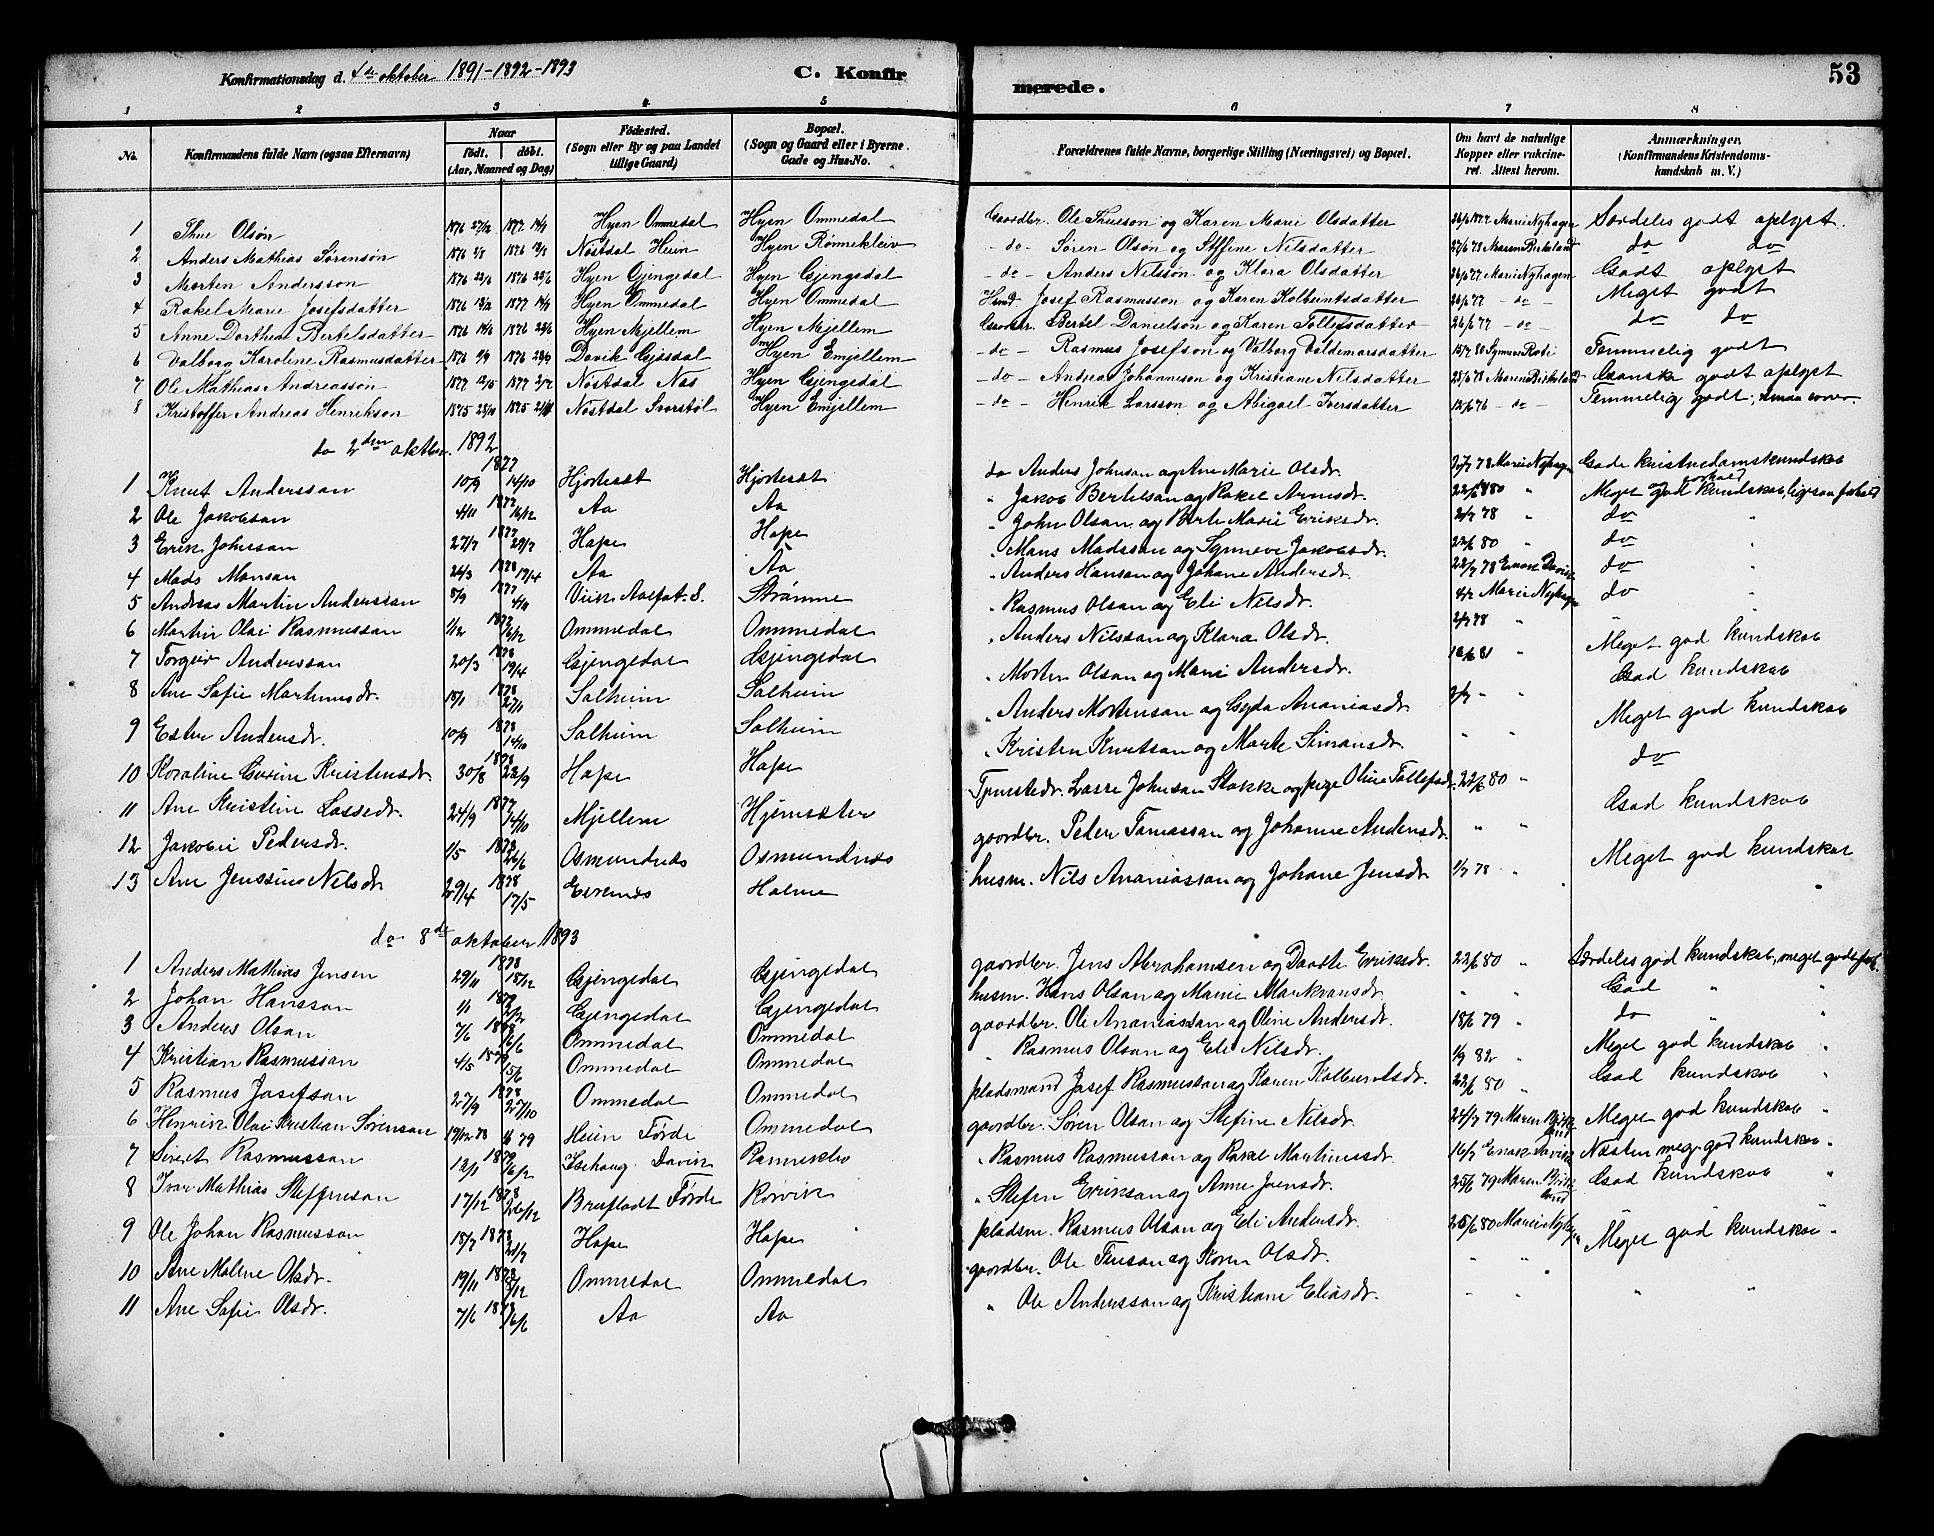 Konfirmationsdag d. 4de oktober 1891-1892-1893 C. Konfirmerede. 53
1 2 3 4 5 6 7 8
No. Konfirmandens fulde Navn (ogsaa Efternavn) Naar født. døbt. (Aar, Maaned og Dag) Fødested. (Sogn eller By og paa Landet tillige Gaard) Bopæl. (Sogn og Gaard eller i Byerne Gade og Hus-No. Forældrenes fulde Navne, borgerlige Stilling (Næringsvei) og Bopæl. Om havt de naturlige Kopper eller vakcineret. Attest herom. Anmærkninger, (Konfirmandens Kristendomskundskab m. V.)
1 Thue Olsøn 1876 27/12 1877 14/1 Hyen Ommedal Hyen Ommedal Gaardbr. Ole Thueson og Karen Marie Olsdatter 26/6 1877 Marie Nyhagen Særdeles godt oplyst.
2 Anders Mathias Sørensøn 1876 1876 Nøstdal Heiin Hyen Rønnekleiv - do - Søren Olson og Steffine Nilsdatter 27/6 78 Maren Birkeland do do
3 Morten Andersson 1876 1876 Hyen Gjengedal Hyen Gjengedal - do - Anders Nilssøn og Klara Olsdatter 26/6 77 Marie Nyhagen Godt oplyst
4 Rakel Marie Josefsdatter 1876 1877 14/1 Hyen Ommedal Hyen Ommedal Husd. Josef Rasmusson og Karen Kolbeintsdatter 26/6 77 - do - Meget godt
5 Anne Dorthea Bertelsdatter 1876 1876 Hyen Mjellem Hyen Mjellem Gaardbr. Bertel Danielson og Karen Tollefsdatter 26/6 77 - do - do do
6 Valborg Karoline Rasmusdatter 1876 1876 Davik Gjesdal Hyen Emjellem - do - Rasmus Josefson og Valborg Valdemarsdatter 15/7 80 Temmelig godt
7 Ole Mathias Andreassøn 1877 1877 Nøstdal Nes Hyen Gjengedal - do - Andreas Johanneson og Kristiane Nilsdatter 25/6 78 Maren Birkeland Ganske godt oplyst
8 Kristoffer Andreas Henrikson 1875 1875 Nøstdal Svorstøl Hyen Emjellem - do - Henrik Larsson og Abigael Iversdatter 12/6 76 - do - Temmelig godt,
do 2den oktbr. 1892
1 Knut Andersson 10/9 1877 14/10 Hjortesæt Hjortesæt do Anders Johnson og Ane Marie Olsdr. 2/7 78 Marie Nyhagen Gode kristendomskundskab
2 Ole Jakobson 4/11 1877 16/12 Aa Aa " Jakob Bertelsan og Rakel Arnesdr. 22/6 1880 " Meget god kundskab,
3 Erik Johnson 27/7 1877 29/7 Hope Hope " John Olsan og Berte Marie Eriksdr. 2/7 78 " do "
4 Mads Monsan 24/3 1878 19/4 Aa Aa " Mons Madssan og Synneve Jakobsdr. 22/6 80 do "
5 Andreas Martin Anderssan 8/9 1877 4/11 Viik Aalfot. S. Strømme " Anders Hansan og Johane Andersdr. 22/7 78 Enok Davik do "
6 Martin Olai Rasmussan 1/12 1877 16/12 Ommedal Ommedal " Rasmus Olsan og Eli Nilsdr. Marie Nyhagen do "
7 Torgeir Anderssan 20/3 1878 19/4 Gjengedal Gjengedal " Anders Nilssan og Klara Olsdr. 2/7 78 " Meget god kundskab
8 Ane Sofie Martinusdr. 18/11 1878 27/11 Solheim Solheim " Morten Olsan og Marie Andersdr. 18/6 81 " God kundskab
9 Ester Andersdr. 10/9 1878 14/10 Solheim Solheim " Anders Mortensan og Gjda Ananiasdr. 2/7 " " Meget god kundskab
10 Karoline Gurine Kristensdr. 30/8 1878 22/9 Hope Hope " Kristen Knutsan og Marte Simonsdr. " " do
11 Ane Kristine Lassedr. 24/9 1877 14/10 Mjellem Hjemsæter Tjenestedr. Lasse Johnsan Stokke og pige Oline Tollefsdr. 22/6 80 " God kundskab
12 Jakobie Pedersdr. 1/5 1878 26/6 Osmundnes Osmundnes gaardbr. Peder Tomassan og Johanne Andersdr. " " Meget god kundskab
13 Ane Jenssine Nilsdr 29/4 1878 17/5 Eikenes Holme husm. Nils Ananiassan og Johane Jensdr. 2/7 78 " "
do 8de oktober 1893
1 Anders Mathias Jensen 29/11 1878 18/12 Gjengedal Gjengedal gaardbr. Jens Abrahamsen og Daarte Eriksdr. 22/6 80 " Særdeles god kundskab, meget god
2 Johan Hansson 1/1 1879 2/2 Gjengedal Gjengedal husm. Hans Olsan og Marie Markvansdr. " " God " "
3 Anders Olsan 7/6 1878 16/6 Ommedal Ommedal gaardbr. Ole Ananiassan og Oline Andersdr. 18/6 79 " do " "
4 Kristian Rasmussan 4/5 1879 15/6 Ommedal Ommedal " Rasmus Olsan og Eli Nilsdr. 1/9 82 " Meget god kundskab "
5 Rasmus Josefsan 27/9 1878 27/10 Ommedal Ommedal pladsmand Josef Rasmussan og Karen Kolbeintsdr. 22/6 80 " God kundskab "
6 Henrik Olai Kristian Sørensan 19/12 78 79 Heien Førde Ommedal gaardbr. Søren Olsan og Stefine Nilsdr. 24/7 79 Maren Birkeland Meget god kundskab "
7 Sivert Rasmussan 12/1 1879 16/2 Isehaug Davik Ramnikleo " Rasmus Rasmussan og Rakel Martinusdr. 16/7 Enok Davik Næsten meget god kundskab "
8 Ivar Mathias Steffensan 17/12 1878 26/12 Brufladt Førde Rørvik " Stefen Eriksan og Anne Joensdr. 25/6 79 Maren Birkeland God kundskab "
9 Ole Johan Rasmussan 18/7 1878 21/7 Hope Hope pladsm. Rasmus Olsan og Eli Andersdr. 25/6 80 Marie Nyhagen Meget god kundskab "
10 Ane Malene Olsdr. 19/11 1878 8/12 Ommedal Ommedal gaardbr. Ole Tuesan og Karen Olsdr. " " "
11 Ane Sofie Olsdr. 7/6 1878 16/6 Aa Aa " Ole Anderssan og Kristiane Eliasdr. " " " "